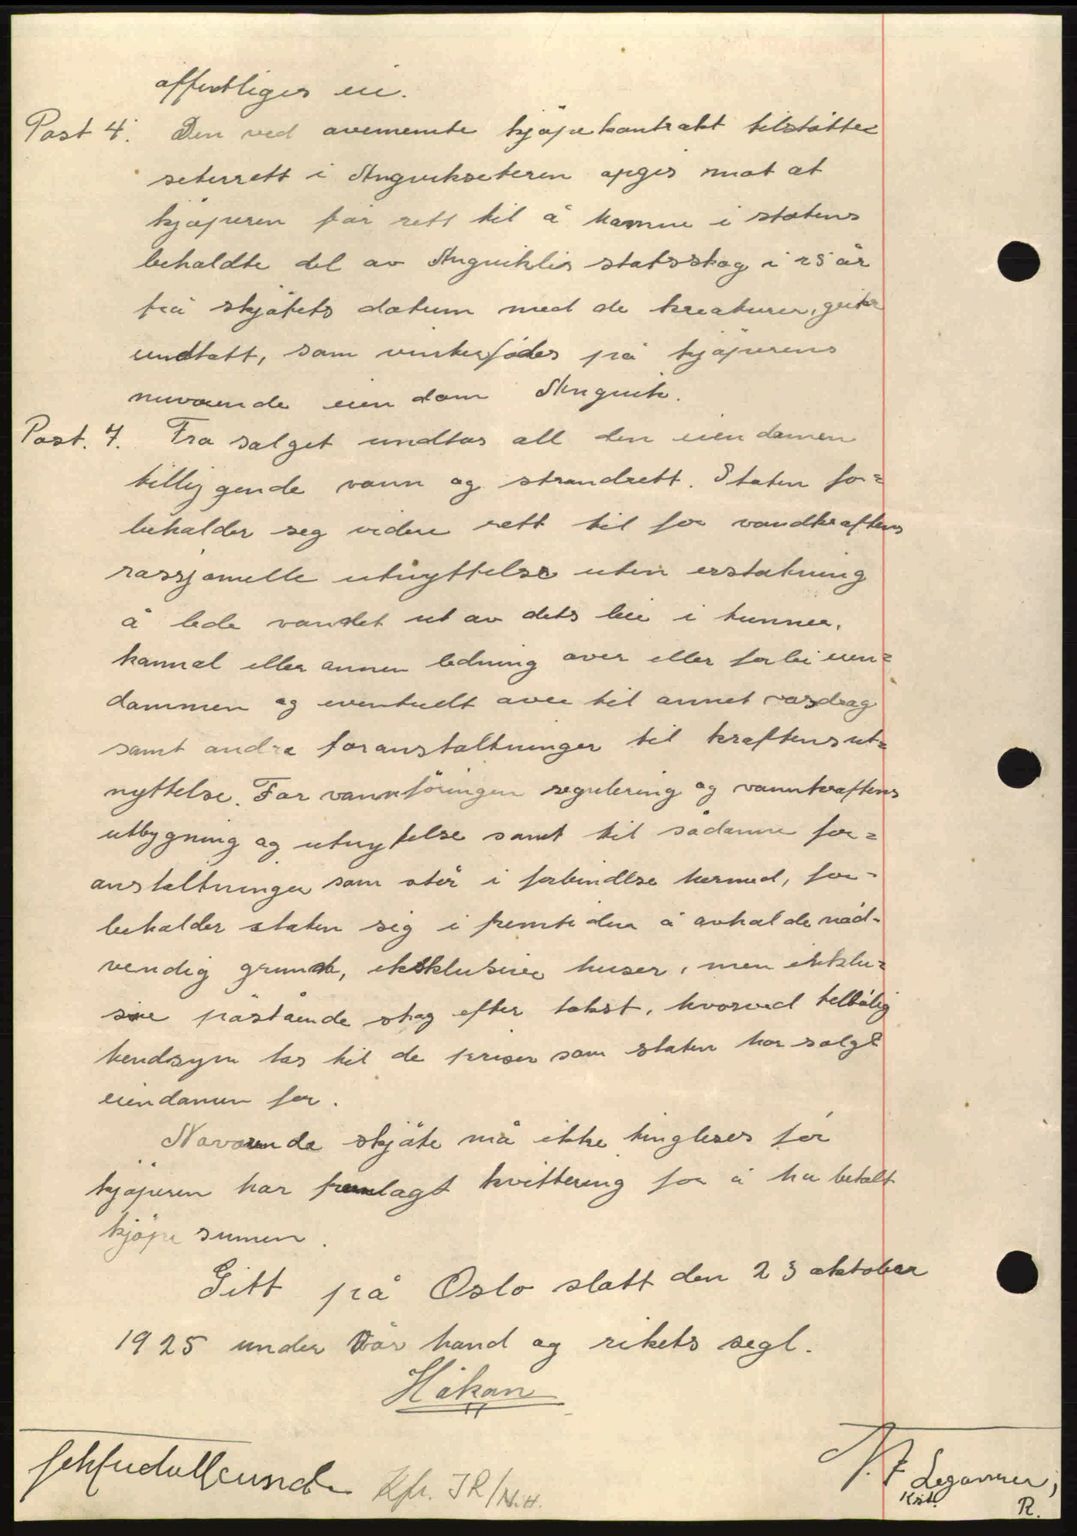 offentliges eie.
Post 4. Den ved ovennevnte kjøpekontrakt tilståtte
seterrett i Angvikseteren opgis mot at
kjøperen får rett til å havne i statens
beholdte del av Angviklis statsskog i 25 år
fra skjøtets datum med de kreaturer, geiter
undtatt, som vinterfødes på kjøperens
nuværende eiendom Angvik.
Post. 7. Fra salget undtas all den eiendommen
tilliggende vann og strandrett. Staten for=
beholder seg videre rett til for vandkraftens
rasjonelle utnyttelse uten erstatning
å lede vandet ut av dets leie i tunnel,
kannal eller annen ledning over eller forbi eien=
dommen og eventuelt over til annet vasdrag
samt andre foranstaltninger til kraftens ut=
nyttelse. For vannføringen regulering og vannkraftens
utbygning og utnyttelse samt til sådanne for=
anstaltninger som står i forbindelse hermed, for-
beholder staten sig i fremtiden å avholde nød-
vendig grund, eksklusive huser, men inklu=
sive påstående skog efter takst, hvorved tilbørlig
hendsyn tas til de priser som staten har solgt
eiendommen for.
Nærværende skjøte må ikke tinglæses før
kjøperen har fremlagt kvittering for å ha betalt
kjøpesummen.
Gitt på Oslo slott den 23 oktober
1925 under Vår hand og rikets segl.
Håkon
Kfr. JR/N.H.
Krst. R.